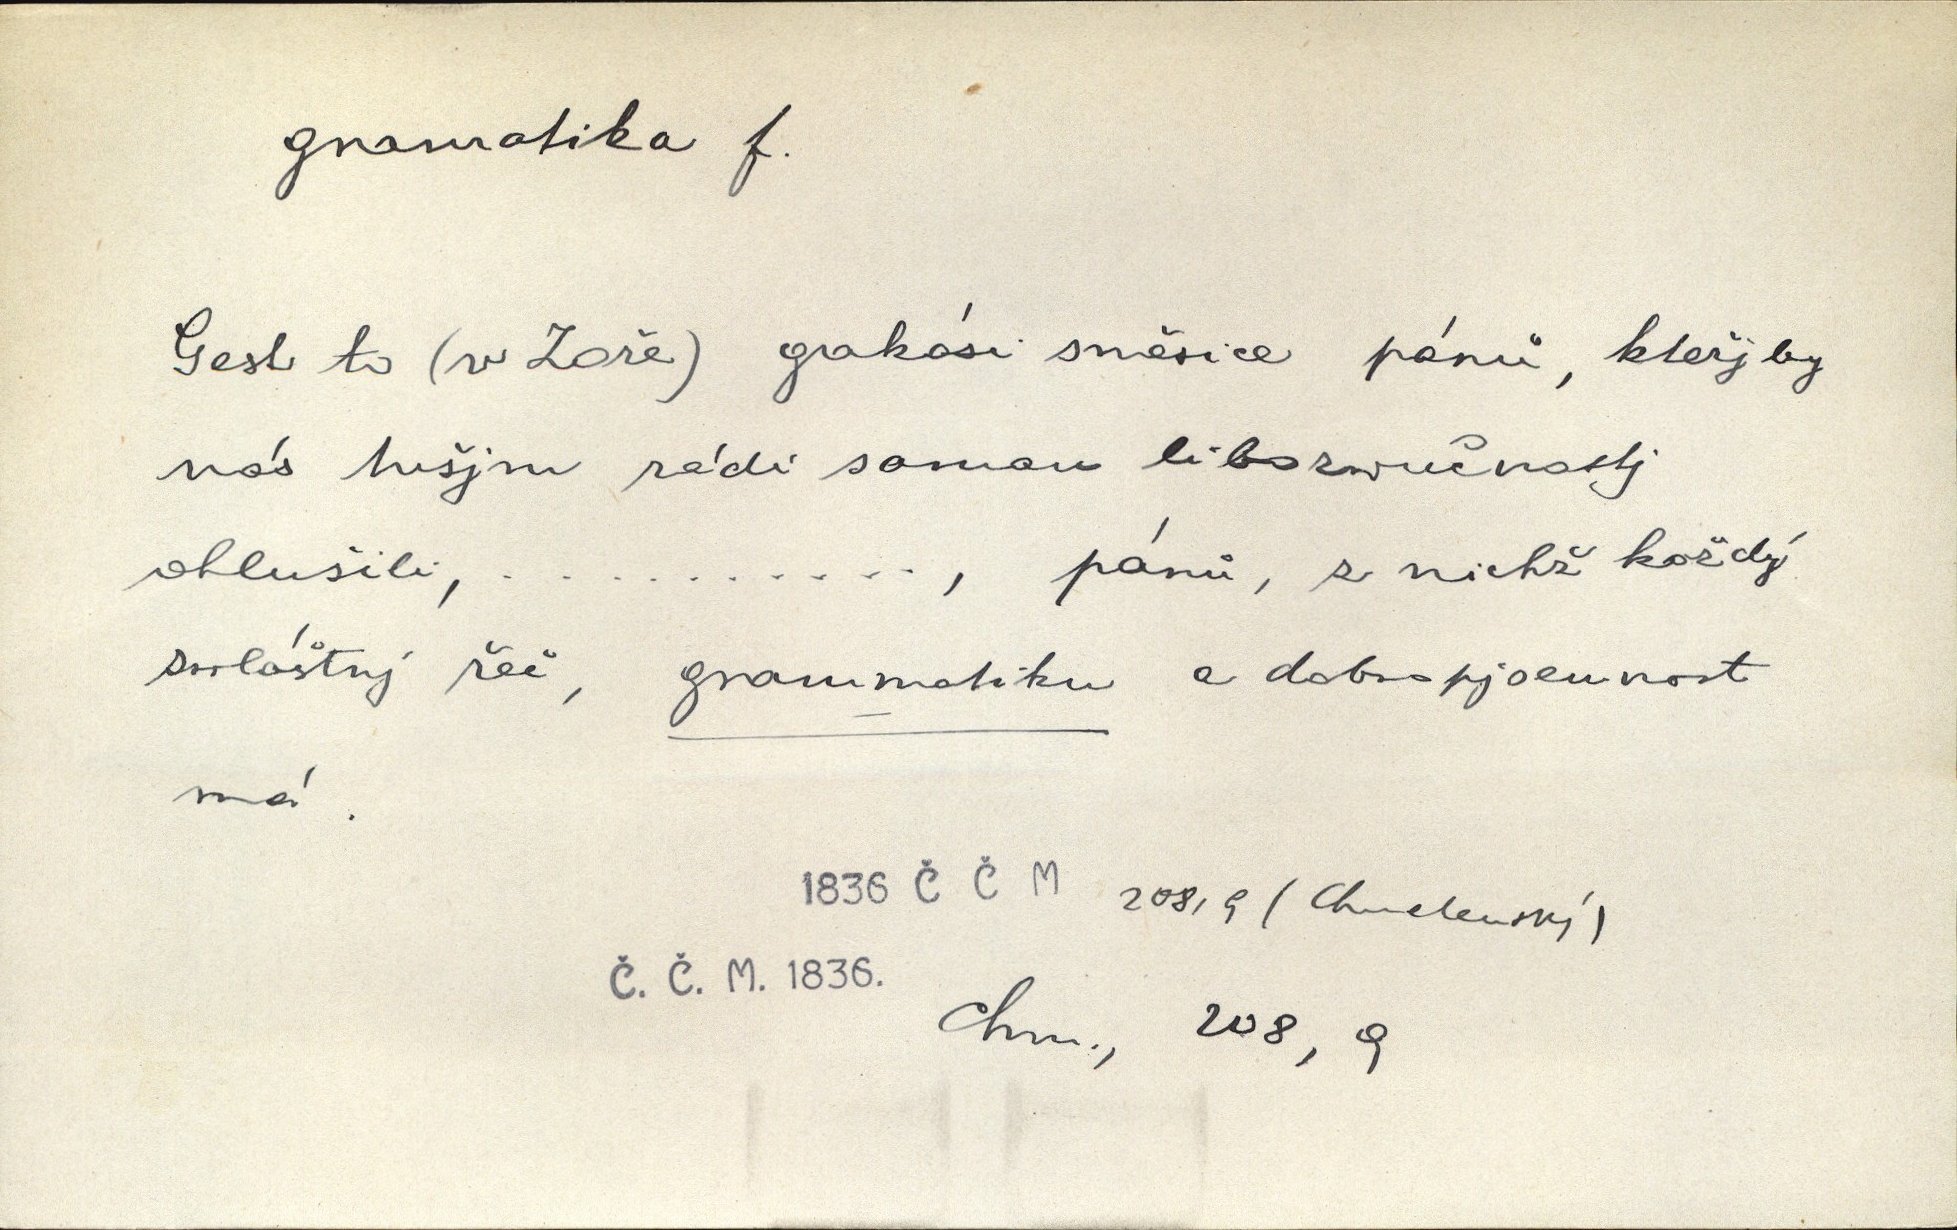 gramatika f.
Gest to (w Zoře) gakási směsice pánů, kteřj by
nás tušjm rádi samau libozwučnostj
ohlušili, . . . . . . . . . . . ., pánů, z nichž každý
zwláštnj řeč, grammatiku a dobropjsemnost
má.
1836 Č Č M 208, 9 (Chmelenský)
Č. Č. M. 1836.
Chm., 208, 9